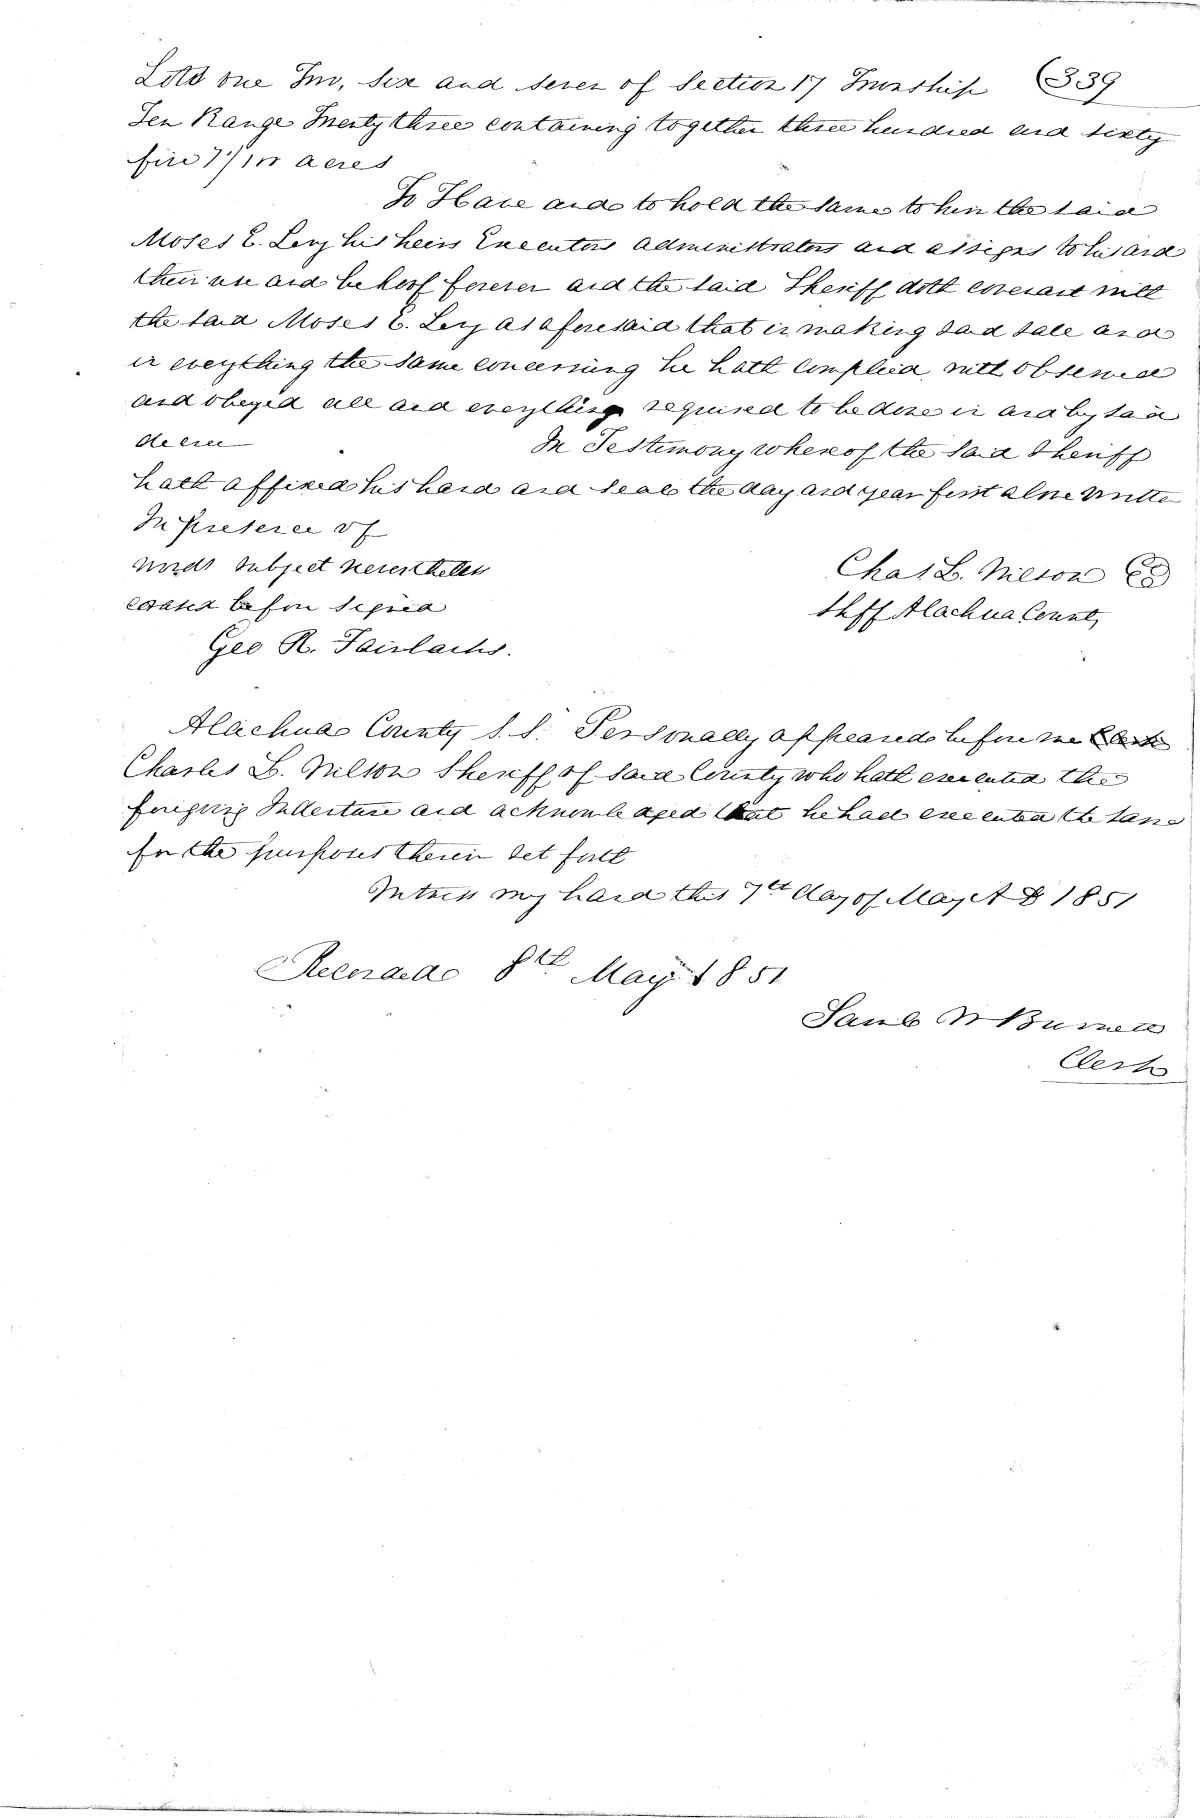 Lots one Two, six and seven of Section 17 Township (339
Ten Range Twenty three containing together three hundred and sixty
five 7/100 acres
To Have and to hold the same to him the said
Moses E. Levy his heirs Executors administrators and assigns to his and
their use and behoof forever and the said Sheriff doth covenant with
the said Moses E. Levy as aforesaid that in making said sale and
in everything the same concerning he hath complied with observed
and obeyed all and everything required to be done in and by said
decree In Testimony whereof the said Sheriff
hath affixed his hand and seal the day and year first above written
In presence of
words subject nevertheless Chas L. Wilson
erased before signed Shff Alachua County
Geo R. Fairbanks.
Alachua County S.S. Personally appeared before me
Charles L. Wilson Sheriff of said County who hath executed the
foregoing Indenture and acknowledged that he had executed the same
for the purposes therein set forth
Witness my hand this 7th day of May A D 1851
Recorded 8th May 1851
Saml W Burnett
Clerk